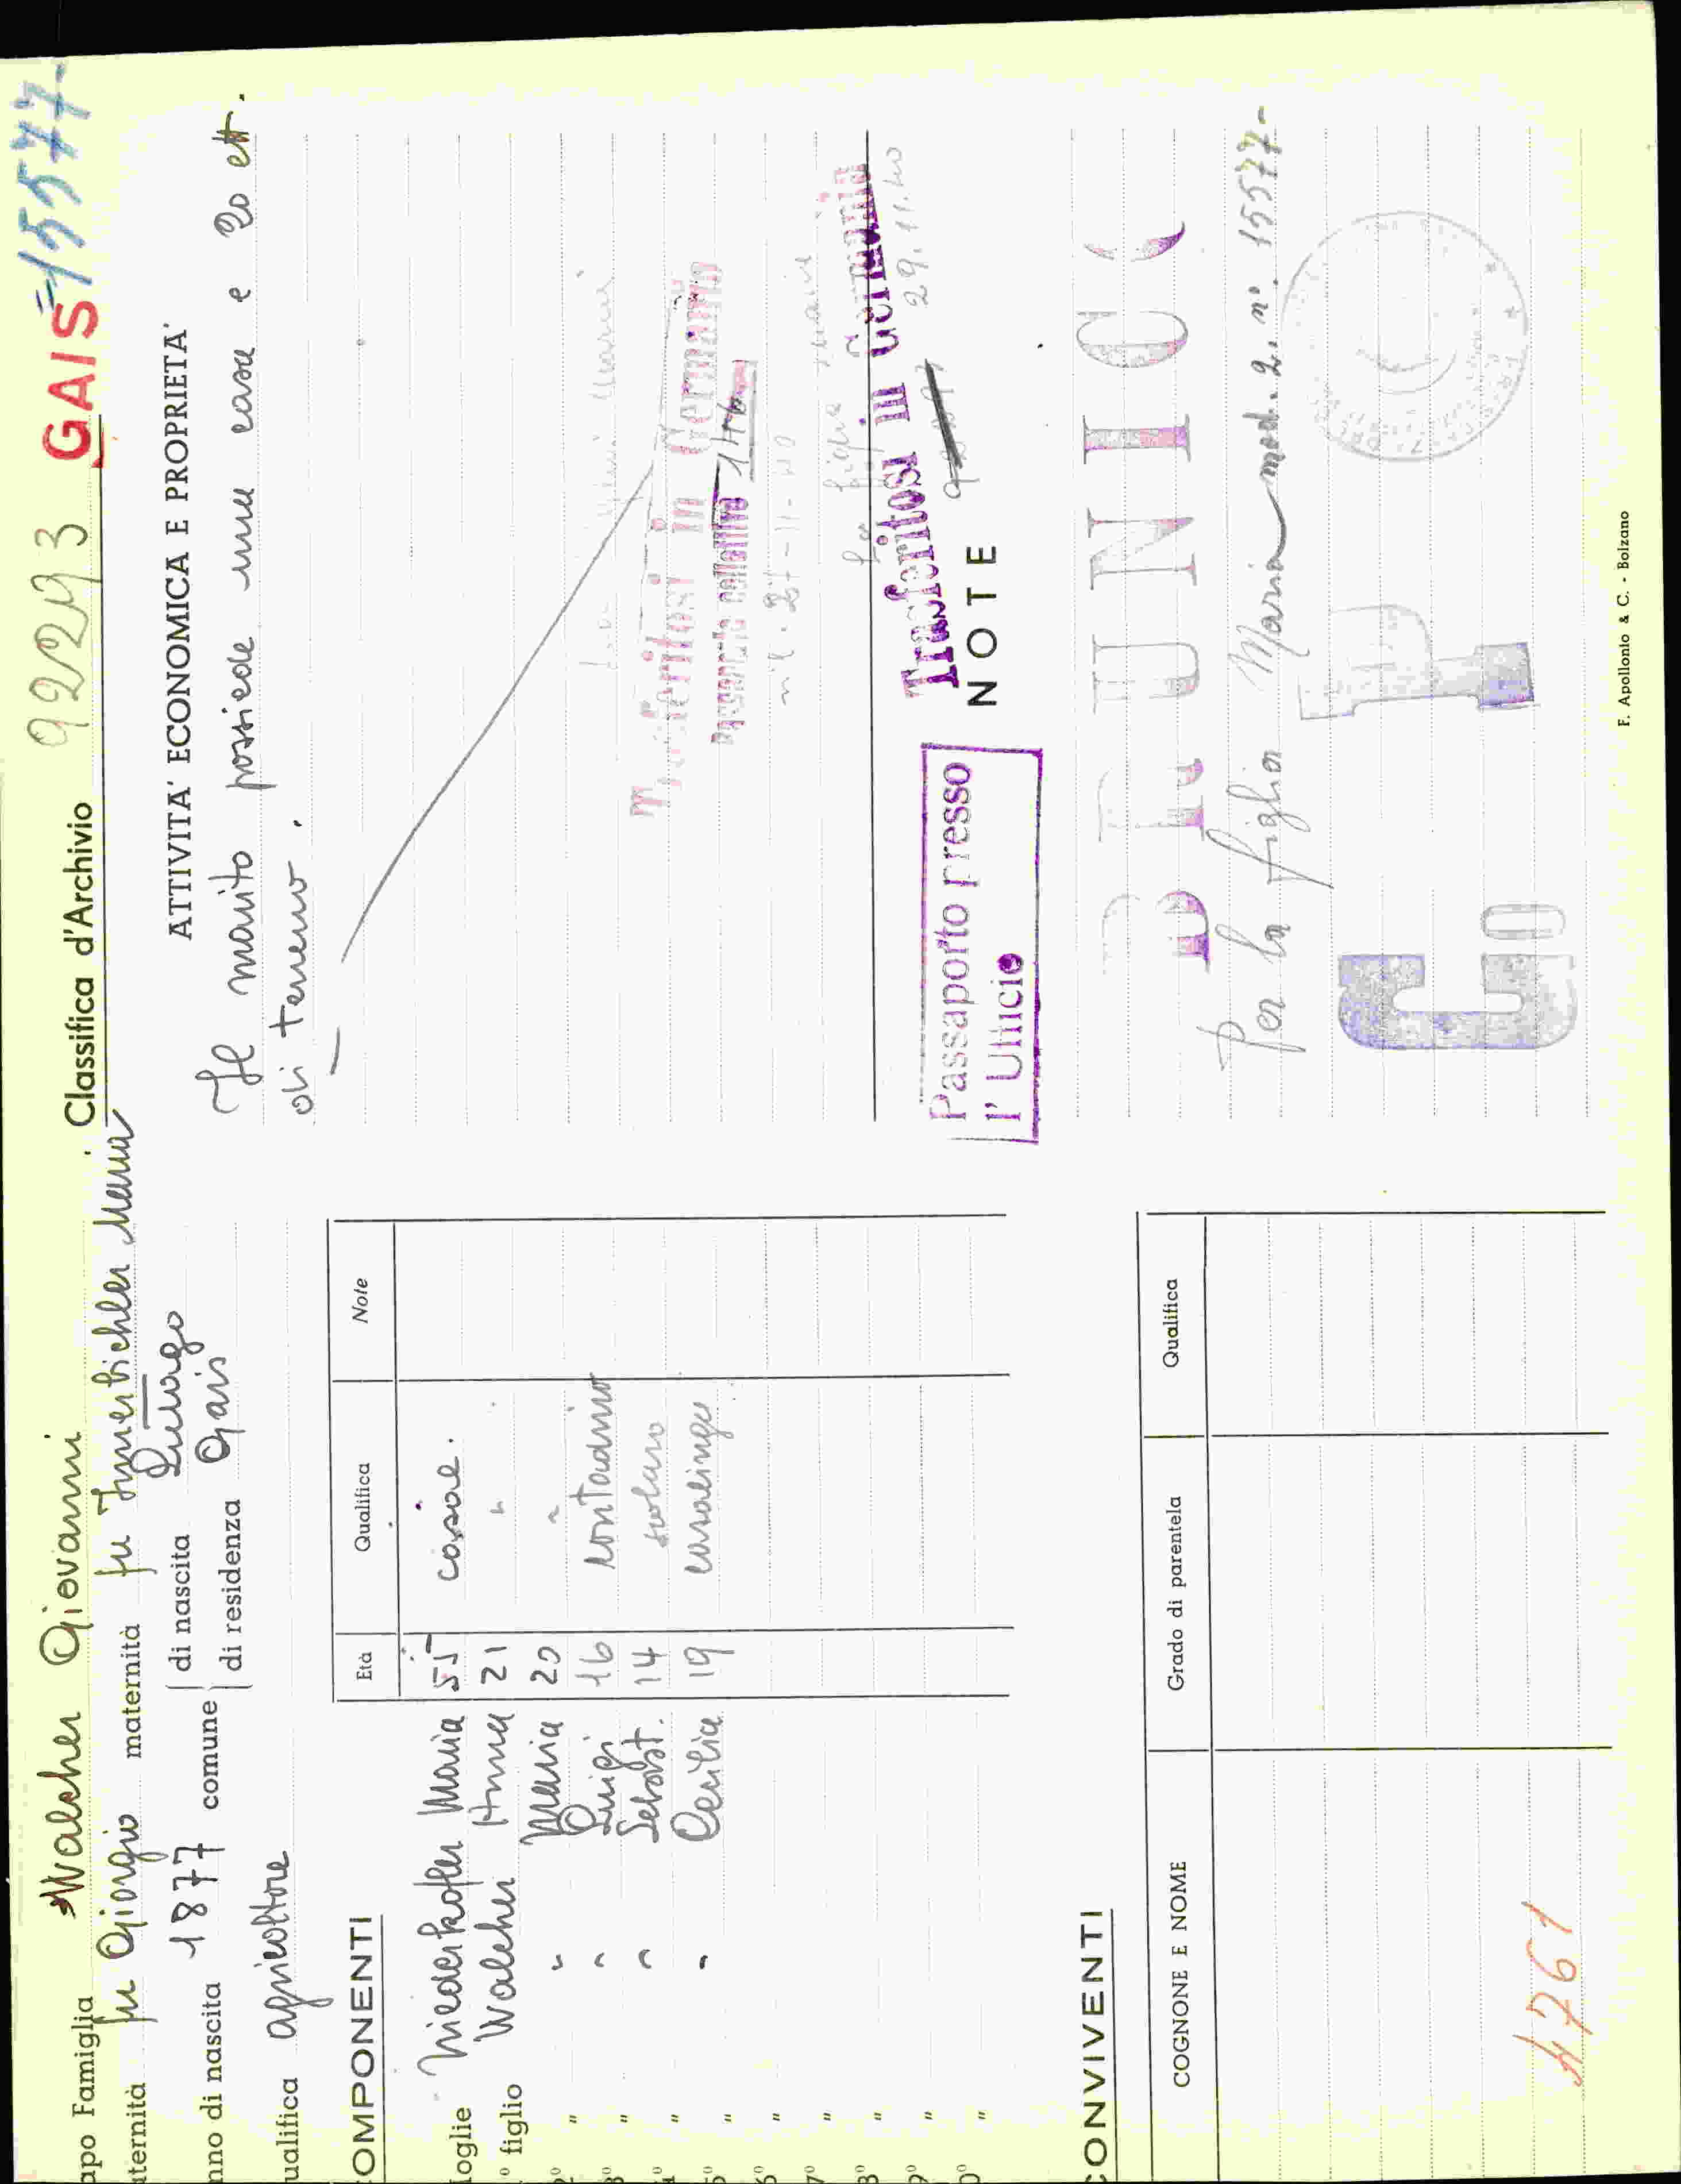 apo Famiglia Walcher Giovanni
aternità fu Giorgio maternità fu Innerbichler Maria
nno di nascita 1877 comune di nascita Lutago
di residenza Gais
ualifica agricoltore
OMPONENTI
Età Qualifica Note
oglie Niederkofler Maria 55 casal.
° figlio Walcher Anna 21 "
2° " " Maria 20 "
3° " " Luigi 16 contadino
4° " " Sebast. 14 scolaro
5° " " Cecilia 19 casalinga
6° "
7° "
8° "
9° "
0° "
CONVIVENTI
COGNONE E NOME Grado di parentela Qualifica
4761
Classifica d'Archivio 92293 GAIS =15577-
ATTIVITA' ECONOMICA E PROPRIETA'
Il marito possiede una casa e 20 ett.
di terreno.
Trasferitosi in Germania
n°l. 27-11-40
Trasferitosi in Germania
29.11.40
NOTE
Passaporto presso
l'Ufficio
BRUNICO
Per la figlia Maria mod. 2. n°. 15577-
F. Apollonio & C. - Bolzano